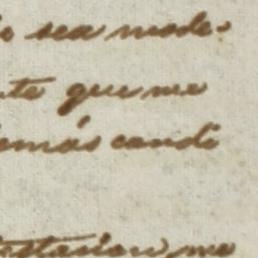 e sea mode-
te que me
emás candi
estacion me